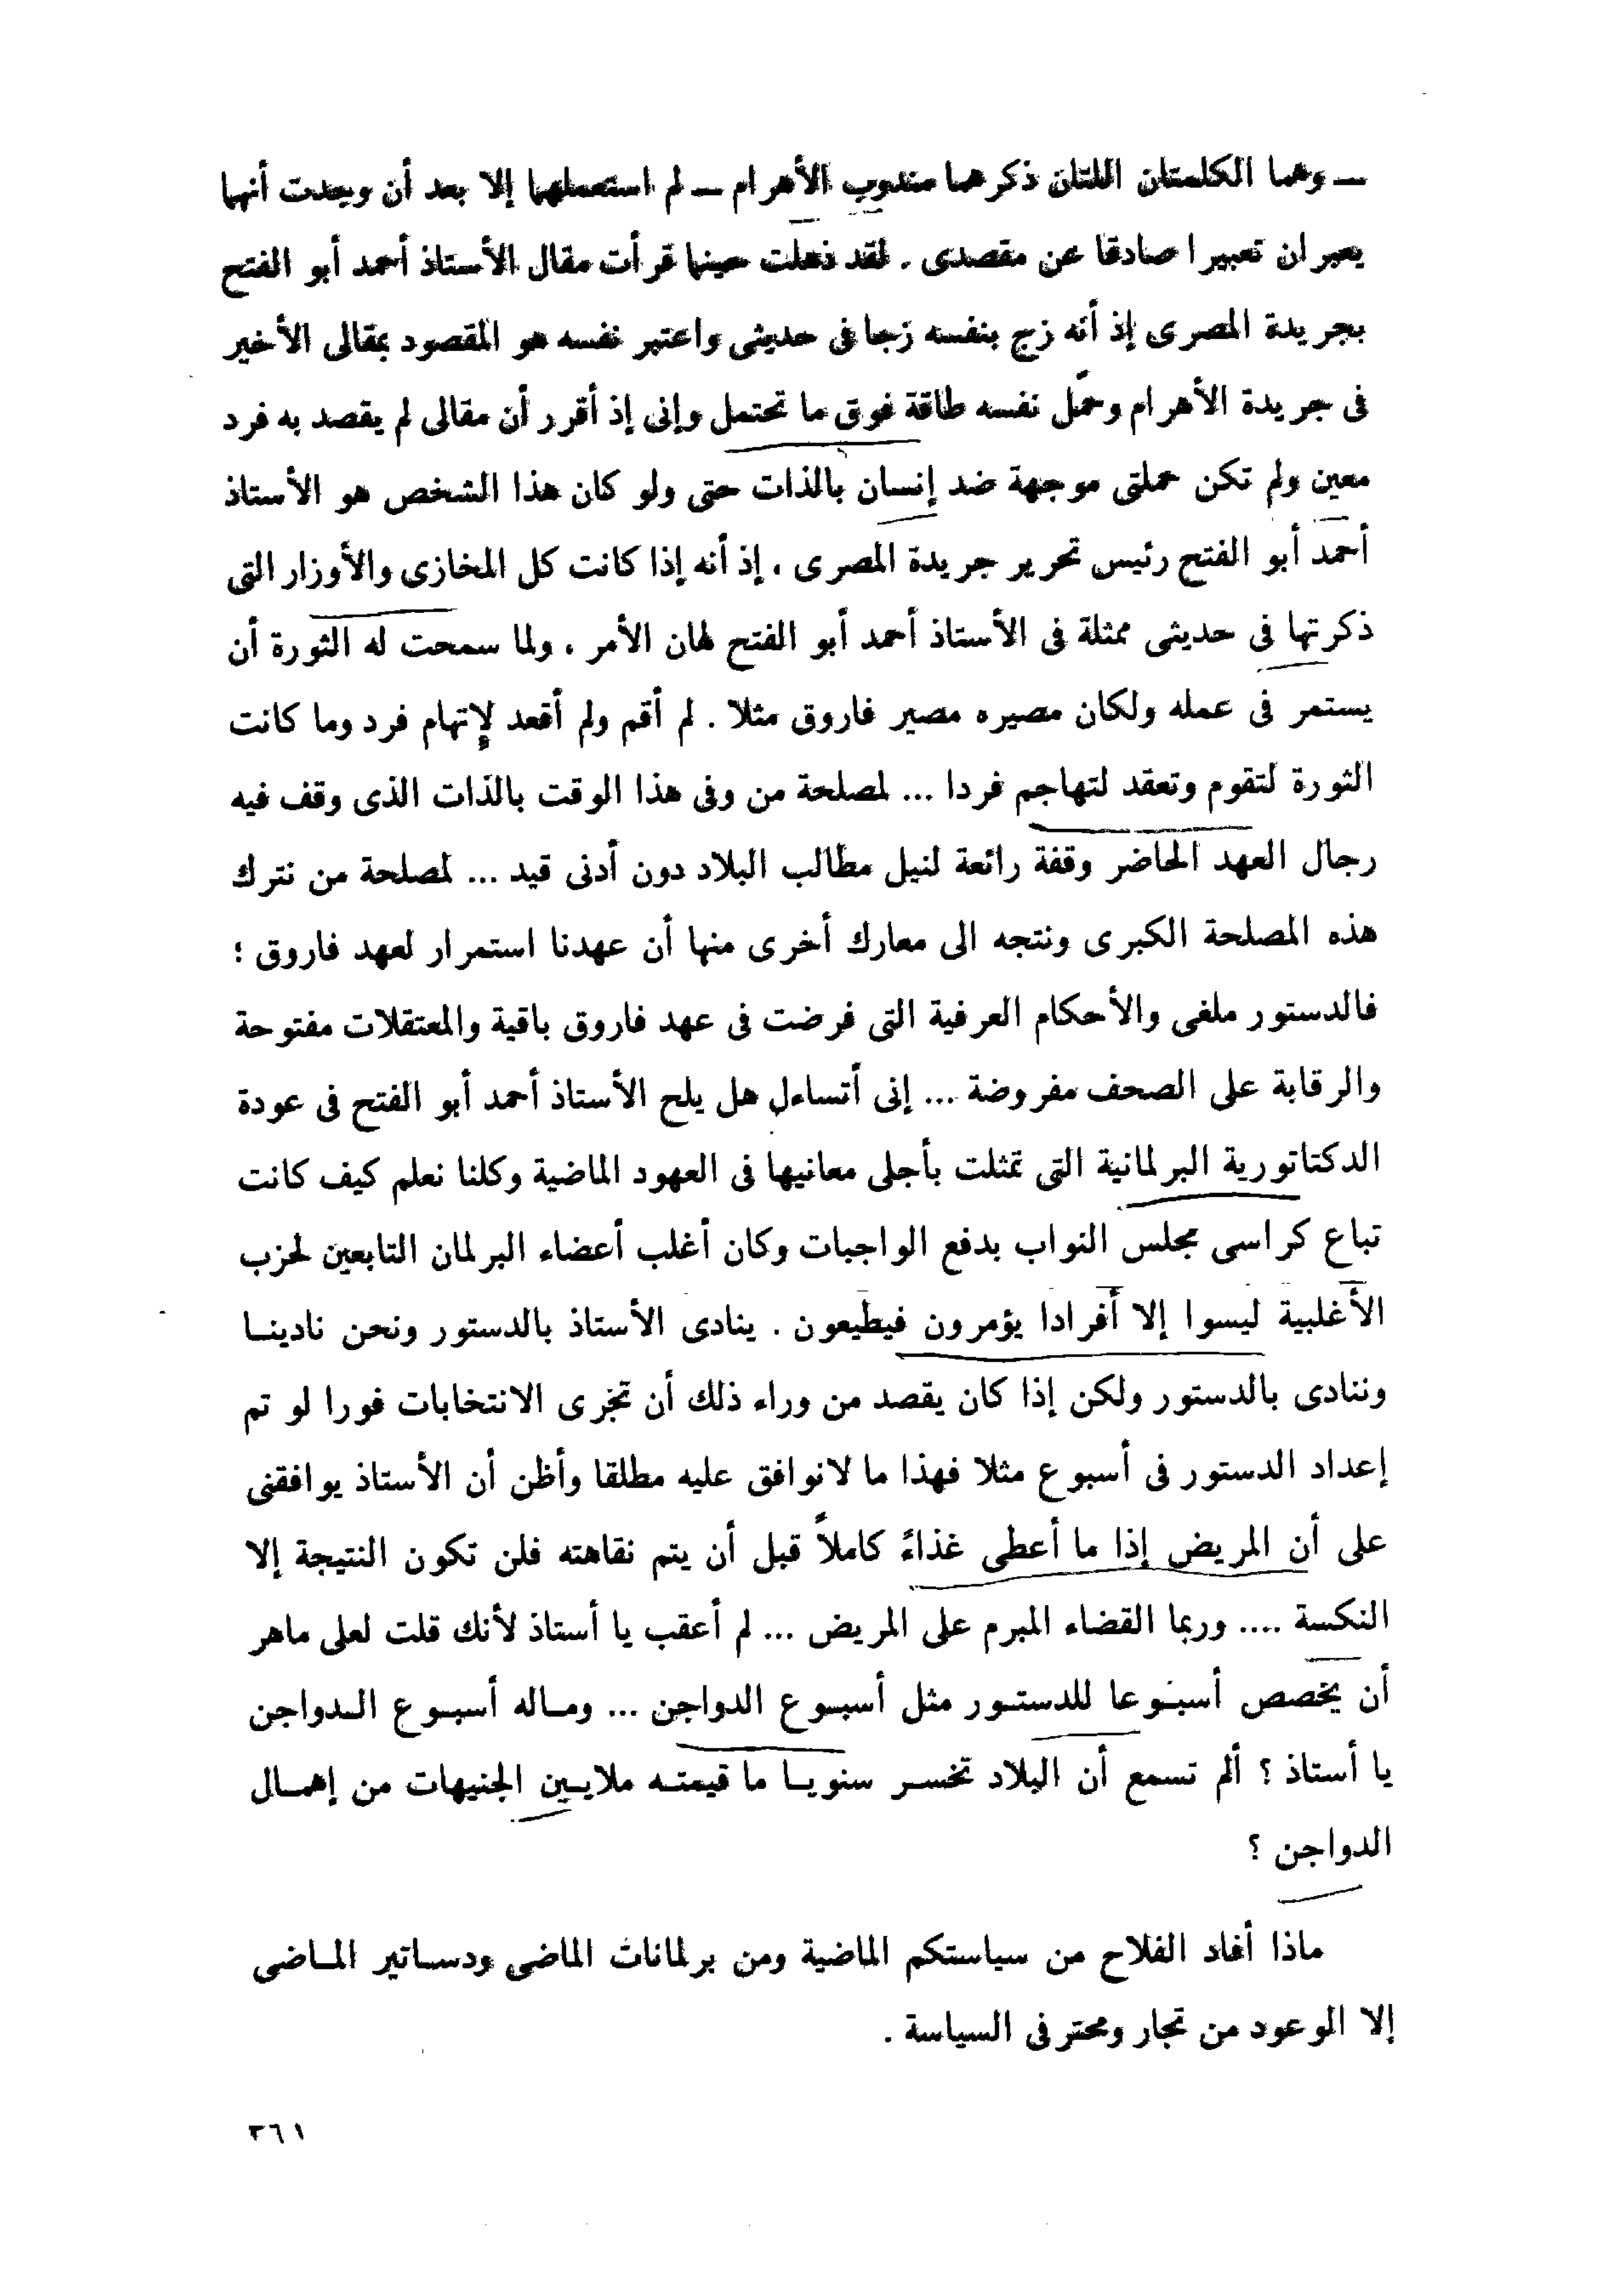 — وهما الكلمتان اللتان ذكرهما مندوب الأهرام — لم استعملهما إلا بعد أن وجدت أنهما
يعبران تعبيرا صادقا عن مقصدى . لقد ذهلت حينما قرأت مقال الأستاذ أحمد أبو الفتح
بجريدة المصرى إذ أنه زج بنفسه زجا فى حديثى واعتبر نفسه هو المقصود بمقالى الأخير
فى جريدة الأهرام وحمَّل نفسه طاقة فوق ما تحتمل وإنى إذ أقرر أن مقالى لم يقصد به فرد
معين ولم تكن حملتى موجهة ضد إنسان بالذات حتى ولو كان هذا الشخص هو الأستاذ
أحمد أبو الفتح رئيس تحرير جريدة المصرى ، إذ أنه إذا كانت كل المخازى والأوزار التى
ذكرتها فى حديثى ممثلة فى الأستاذ أحمد أبو الفتح لهان الأمر ، ولما سمحت له الثورة أن
يستمر فى عمله ولكان مصيره مصير فاروق مثلا . لم أقم ولم أقعد لإتهام فرد وما كانت
الثورة لتقوم وتعقد لتهاجم فردا ... لمصلحة من وفى هذا الوقت بالذات الذى وقف فيه
رجال العهد الحاضر وقفة رائعة لنيل مطالب البلاد دون أدنى قيد ... لمصلحة من نترك
هذه المصلحة الكبرى ونتجه الى معارك أخرى منها أن عهدنا استمرار لعهد فاروق ؛
فالدستور ملغى والأحكام العرفية التى فرضت فى عهد فاروق باقية والمعتقلات مفتوحة
والرقابة على الصحف مفروضة ... إنى أتساءل هل يلح الأستاذ أحمد أبو الفتح فى عودة
الدكتاتورية البرلمانية التى تمثلت بأجلى معانيها فى العهود الماضية وكلنا نعلم كيف كانت
تباع كراسى مجلس النواب بدفع الواجبات وكان أغلب أعضاء البرلمان التابعين لحزب
الأغلبية ليسوا إلا أفرادا يؤمرون فيطيعون . ينادى الأستاذ بالدستور ونحن نادينا
وننادى بالدستور ولكن إذا كان يقصد من وراء ذلك أن تجرى الانتخابات فورا لو تم
إعداد الدستور فى أسبوع مثلا فهذا ما لانوافق عليه مطلقا وأظن أن الأستاذ يوافقنى
على أن المريض إذا ما أعطى غذاءً كاملاً قبل أن يتم نقاهته فلن تكون النتيجة إلا
النكسة .... وربما القضاء المبرم على المريض ... لم أعقب يا أستاذ لأنك قلت لعلى ماهر
أن يخصص أسبوعا للدستور مثل أسبوع الدواجن ... وماله أسبوع الدواجن
يا أستاذ ؟ ألم تسمع أن البلاد تخسر سنويا ما قيمته ملايين الجنيهات من إهمال
الدواجن ؟
ماذا أفاد الفلاح من سياستكم الماضية ومن برلمانات الماضى ودساتير الماضى
إلا الوعود من تجار ومحترفى السياسة .
٣٦١